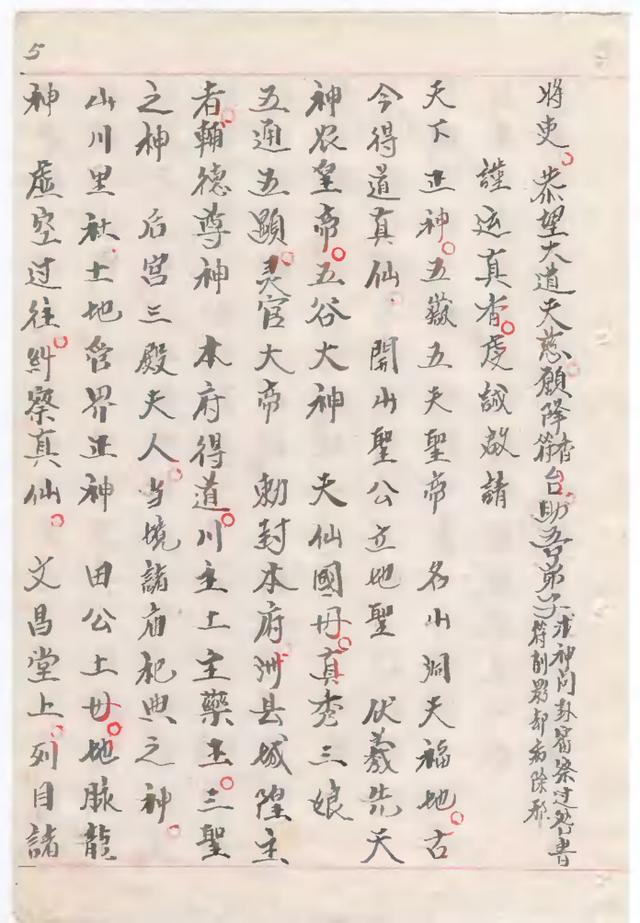 5
將吏。恭望大道天慈願降香符台助吾弟子求神问卦畱察过咎書符削影却病除邪
謹运真香。虔誠啟請
天下正神。五嶽五天聖帝 名山洞天福地。古
今得道真仙 開山聖公立地聖 伏羲先天
神农皇帝。五谷大神 天仙國母。真 三娘
五通五顯灵官大帝 勅封本府洲县城隍主
者輔德尊神 本府得道。川主土主藥王。三聖
之神 后宫三殿夫人。当境諸庙祀典之神。
山川里社土地管界正神 田公土母。地脉龍
神 虚空过往。糾察真仙。 文昌堂上列目諸